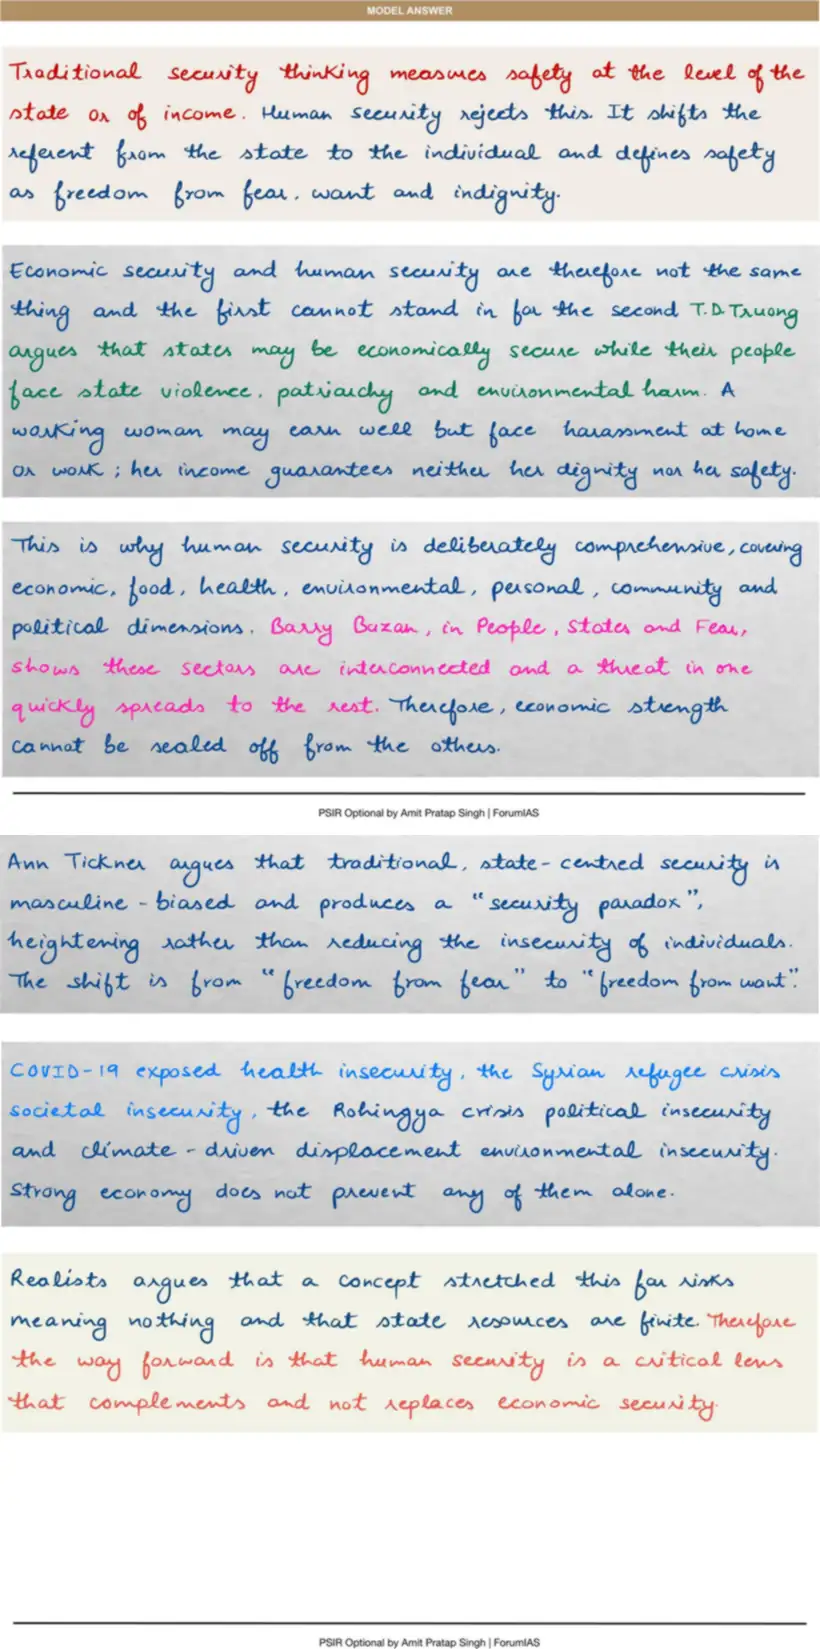 MODEL ANSWER
Traditional security thinking measures safety at the level of the
state or of income. Human security rejects this. It shifts the
referent from the state to the individual and defines safety
as freedom from fear, want and indignity.
Economic security and human security are therefore not the same
thing and the first cannot stand in for the second T.D. Truong
argues that states may be economically secure while their people
face state violence, patriarchy and environmental harm. A
working woman may earn well but face harassment at home
or work; her income guarantees neither her dignity nor her safety.
This is why human security is deliberately comprehensive, covering
economic, food, health, environmental, personal, community and
political dimensions. Barry Buzan, in People, States and Fear,
shows these sectors are interconnected and a threat in one
quickly spreads to the rest. Therefore, economic strength
cannot be sealed off from the others.
PSIR Optional by Amit Pratap Singh | ForumIAS
Ann Tickner argues that traditional, state-centred security is
masculine-biased and produces a "security paradox",
heightening rather than reducing the insecurity of individuals.
The shift is from "freedom from fear" to "freedom from want".
COVID-19 exposed health insecurity, the Syrian refugee crisis
societal insecurity, the Rohingya crisis political insecurity
and climate-driven displacement environmental insecurity.
Strong economy does not prevent any of them alone.
Realists argues that a concept stretched this far risks
meaning nothing and that state resources are finite. Therefore
the way forward is that human security is a critical lens
that complements and not replaces economic security.
PSIR Optional by Amit Pratap Singh | ForumIAS